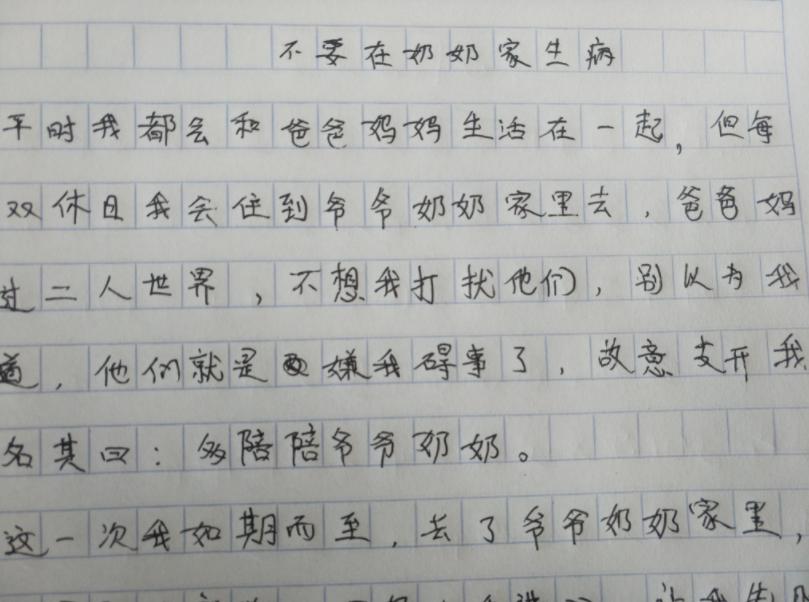 不要在奶奶家生病
平时我都会和爸爸妈妈生活在一起，但每
双休日我会住到爷爷奶奶家里去，爸爸妈
过二人世界，不想我打扰他们，别以为我
道，他们就是嫌我碍事了，故意支开我
名其曰：多陪陪爷爷奶奶。
这一次我如期而至，去了爷爷奶奶家里，